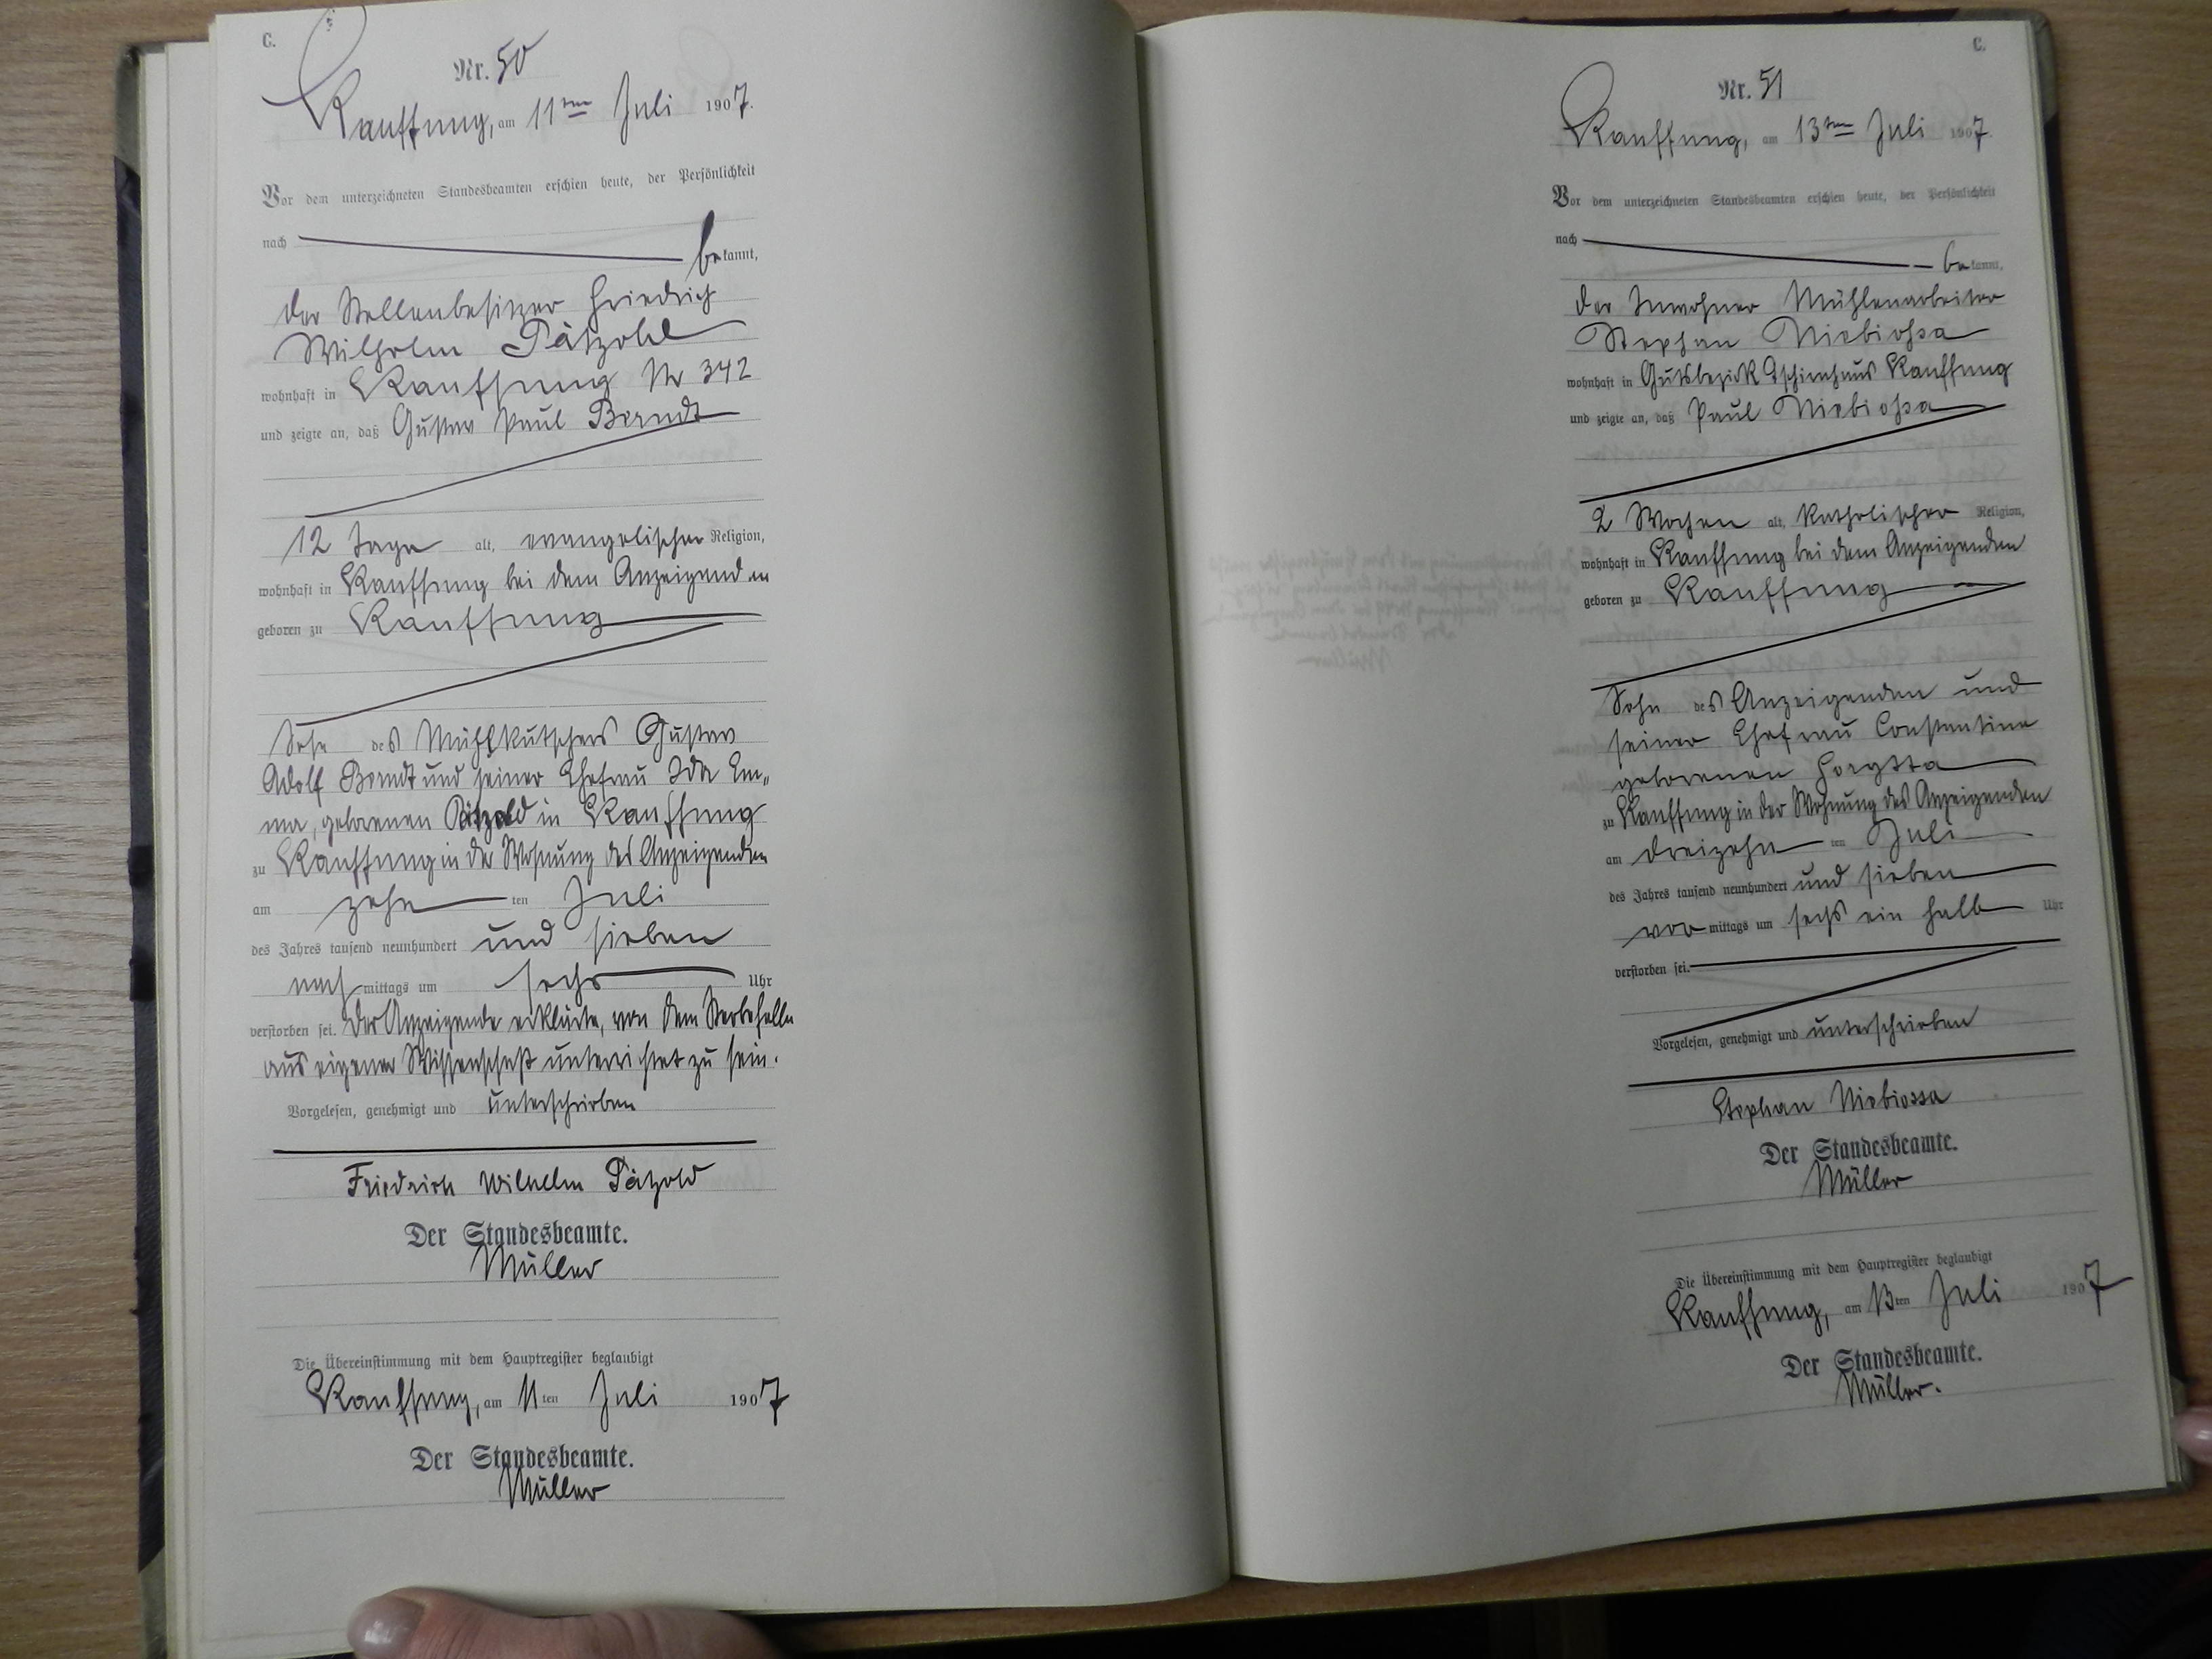 C.
Nr. 50
Kauffung, am 11ten Juli 1907.
Vor dem unterzeichneten Standesbeamten erschien heute, der Persönlichkeit
nach bekannt,
der Stellenbesitzer Friedrich
Wilhelm Pätzold
wohnhaft in Kauffung Nr 342
und zeigte an, daß Gustav Paul Berndt
12 Tage alt, evangelischer Religion,
wohnhaft in Kauffung bei dem Anzeigenden
geboren zu Kauffung
Sohn des Mühlkutschers Gustav
Adolf Berndt und seiner Ehefrau Ida Em„
ma, geborenen Pätzold in Kauffung
zu Kauffung in der Wohnung des Anzeigenden
am zehnten Juli
des Jahres tausend neunhundert und sieben
nachmittags um sechs Uhr
verstorben sei. Der Anzeigende erklärte, von dem Sterbefalle
aus eigener Wissenschaft unterrichtet zu sein.
Vorgelesen, genehmigt und unterschrieben
Friedrich Wilhelm Pätzold
Der Standesbeamte.
Müller
Die Übereinstimmung mit dem Hauptregister beglaubigt
Kauffung, am 11ten Juli 1907
Der Standesbeamte.
Müller
C.
Nr. 51
Kauffung, am 13ten Juli 1907.
Vor dem unterzeichneten Standesbeamten erschien heute, der Persönlichkeit
nach bekannt,
der Inwohner Mühlenarbeiter
Stephan Niebiossa
wohnhaft in Gutsbezirk Tschirnhaus Kauffung
und zeigte an, daß Paul Niebiossa
2 Wochen alt, katholischer Religion,
wohnhaft in Kauffung bei dem Anzeigenden
geboren zu Kauffung
Sohn des Anzeigenden und
seiner Ehefrau Constantine
geborenen
zu Kauffung in der Wohnung des Anzeigenden
am dreizehnten Juli
des Jahres tausend neunhundert und sieben
vormittags um sechs ein halb Uhr
verstorben sei.
Vorgelesen, genehmigt und unterschrieben
Stephan Niebiossa
Der Standesbeamte.
Müller
Die Übereinstimmung mit dem Hauptregister beglaubigt
Kauffung, am 13ten Juli 1907
Der Standesbeamte.
Müller.